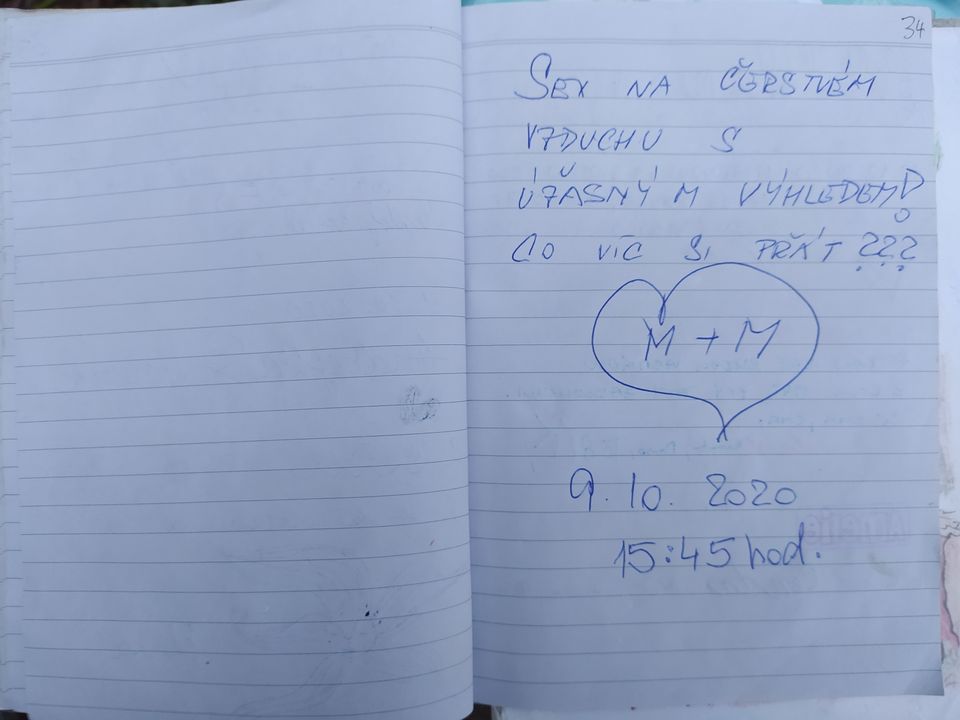 34
SEX NA ČERSTVÉM
VZDUCHU S
ÚŽASNÝM VÝHLEDEM!
CO VÍC SI PŘÁT ???
M + M
9. 10. 2020
15:45 hod.